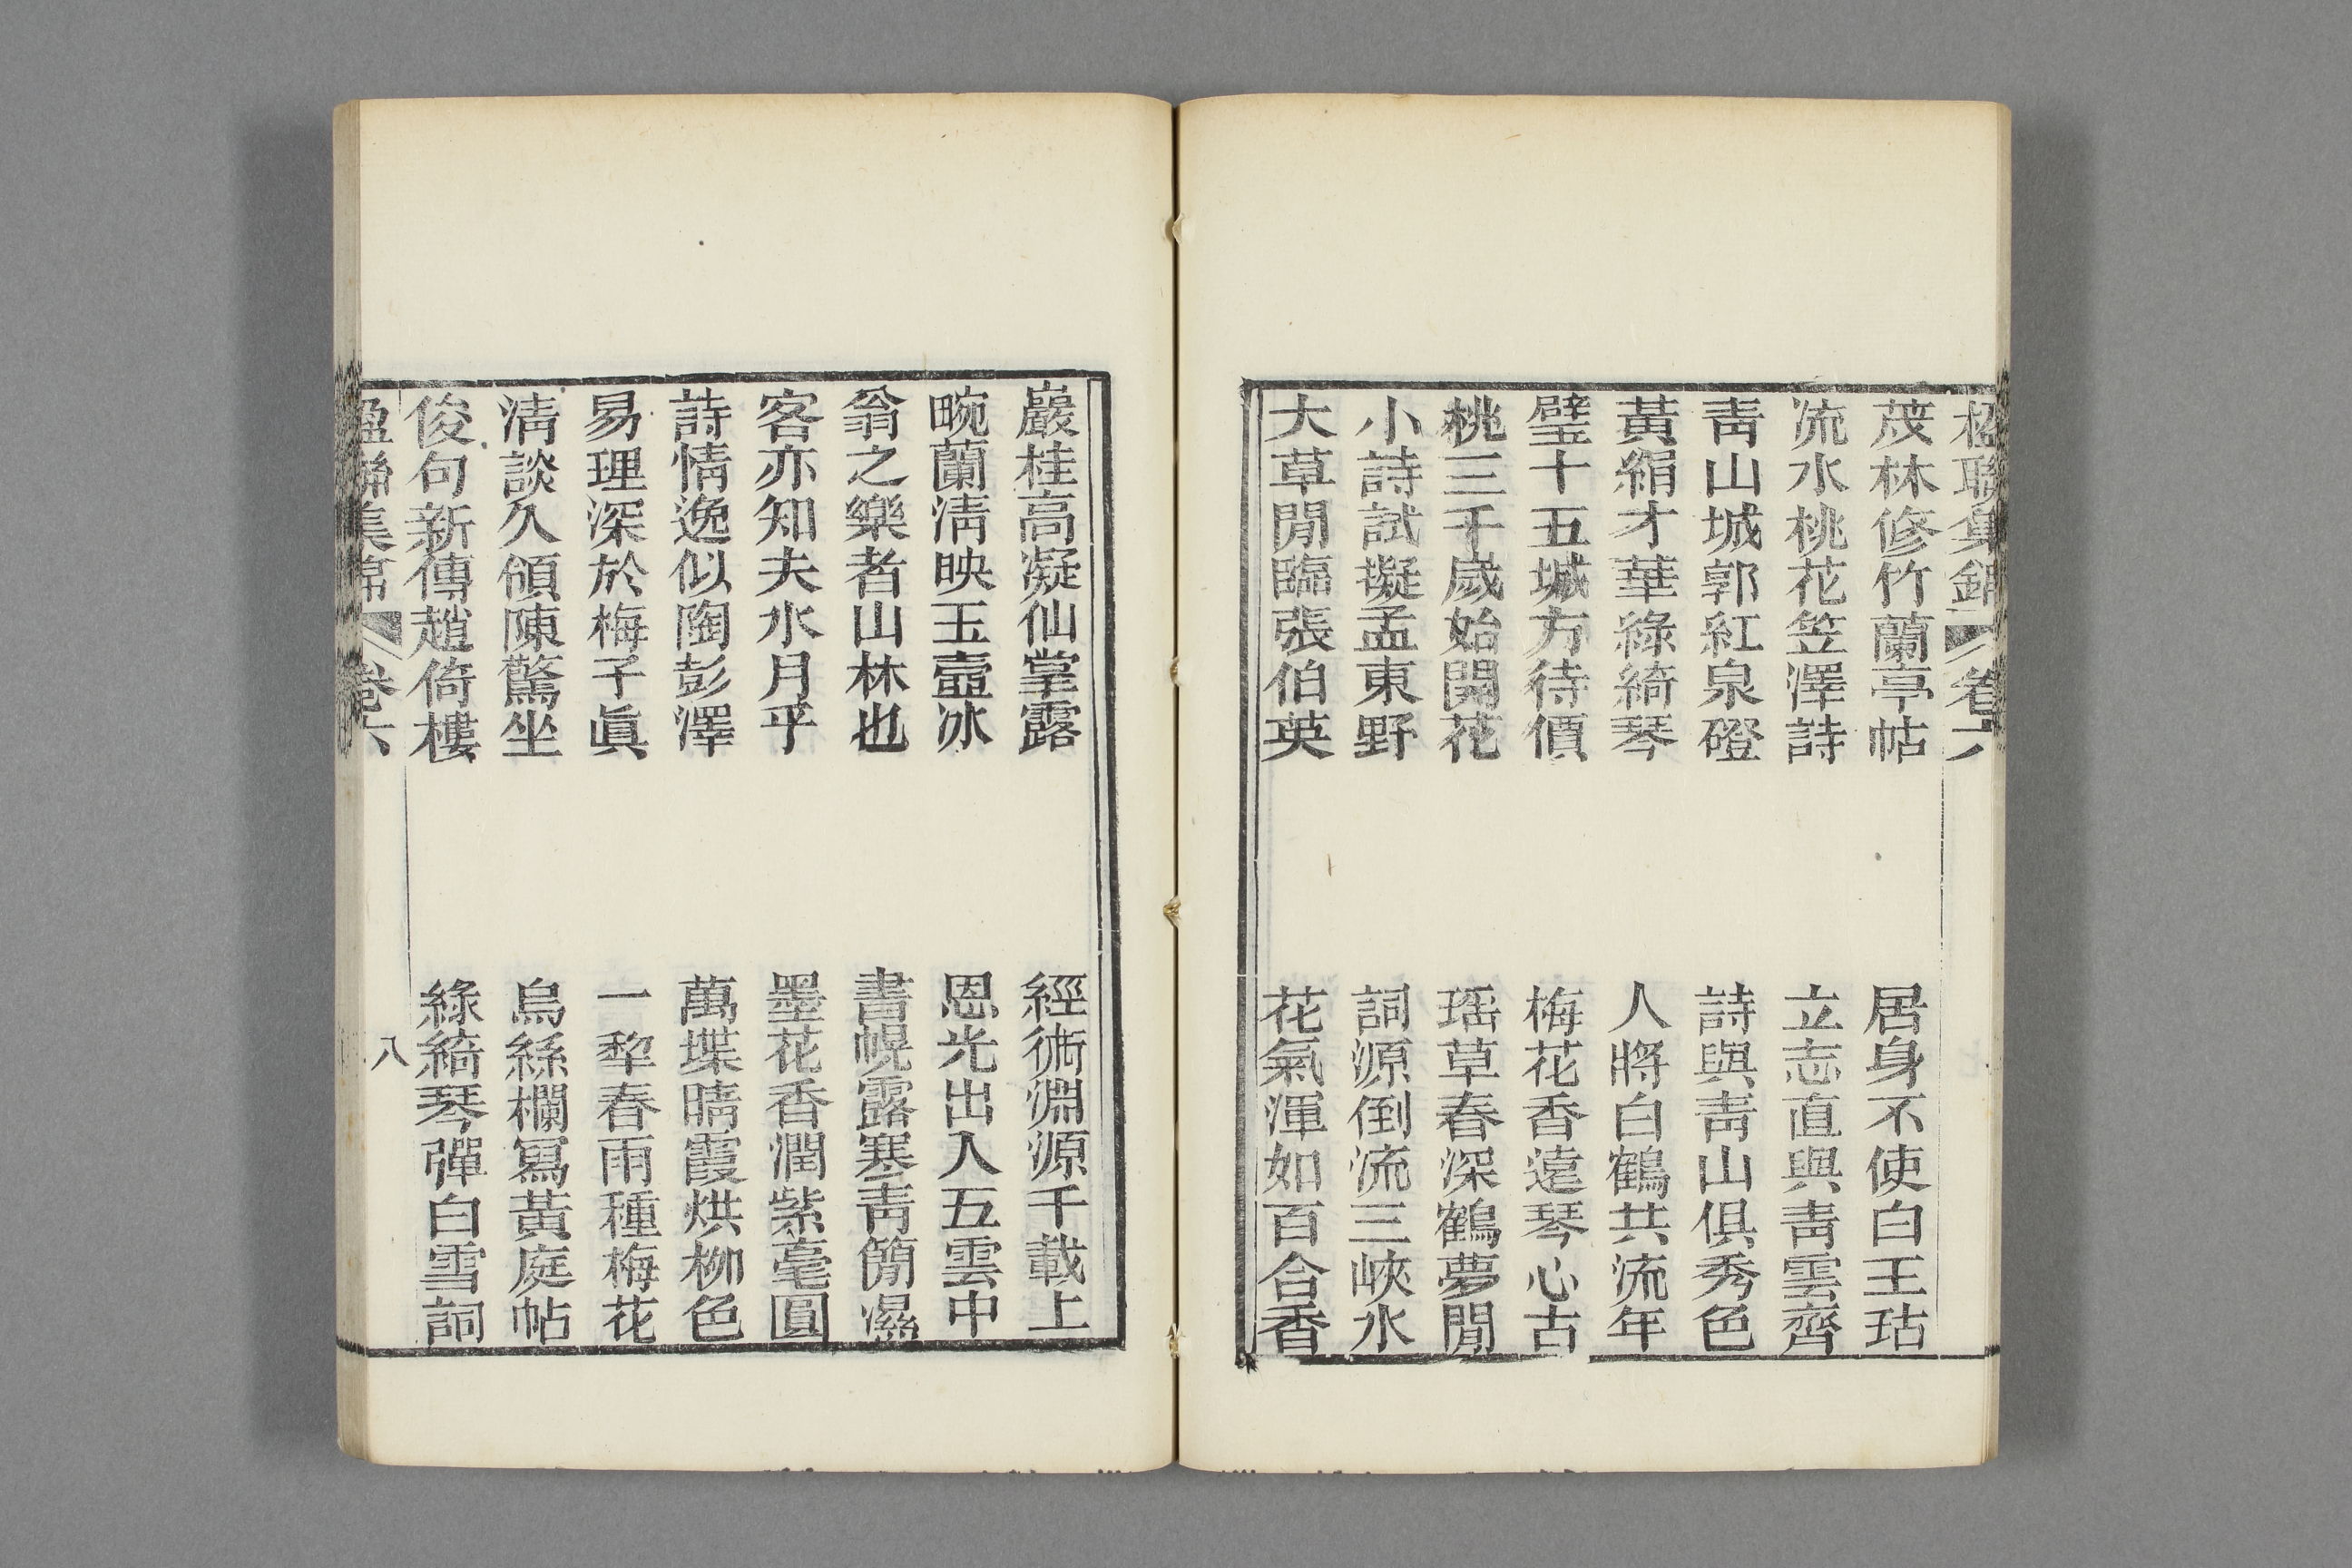 茂林修竹蘭亭帖
居身不使白王玷
流水桃花笠澤詩
立志直與靑雲齊
靑山城郭紅泉磴
詩與靑山俱秀色
黃絹才華綠綺琴
人將白鶴共流年
璧十五城方待價
梅花香遠琴心古
桃三千歲始開花
瑶草春深鶴夢閒
小詩試擬孟東野
詞源倒流三峽水
大草閒臨張伯英
花氣渾如百合香
巖桂高凝仙掌露
經術淵源千載上
畹蘭淸映玉壼冰
恩光出入五雲中
翁之樂者山林也
書幌露寒靑簡濕
客亦知夫水月乎
墨花香潤紫毫圓
詩情逸似陶彭澤
萬堞晴霞烘柳色
易理深於梅子眞
一犂春雨種梅花
淸談久傾陳驚坐
烏絲欄寫黃庭帖
俊句新傳趙倚樓
綠綺琴彈白雪詞
卷六
八